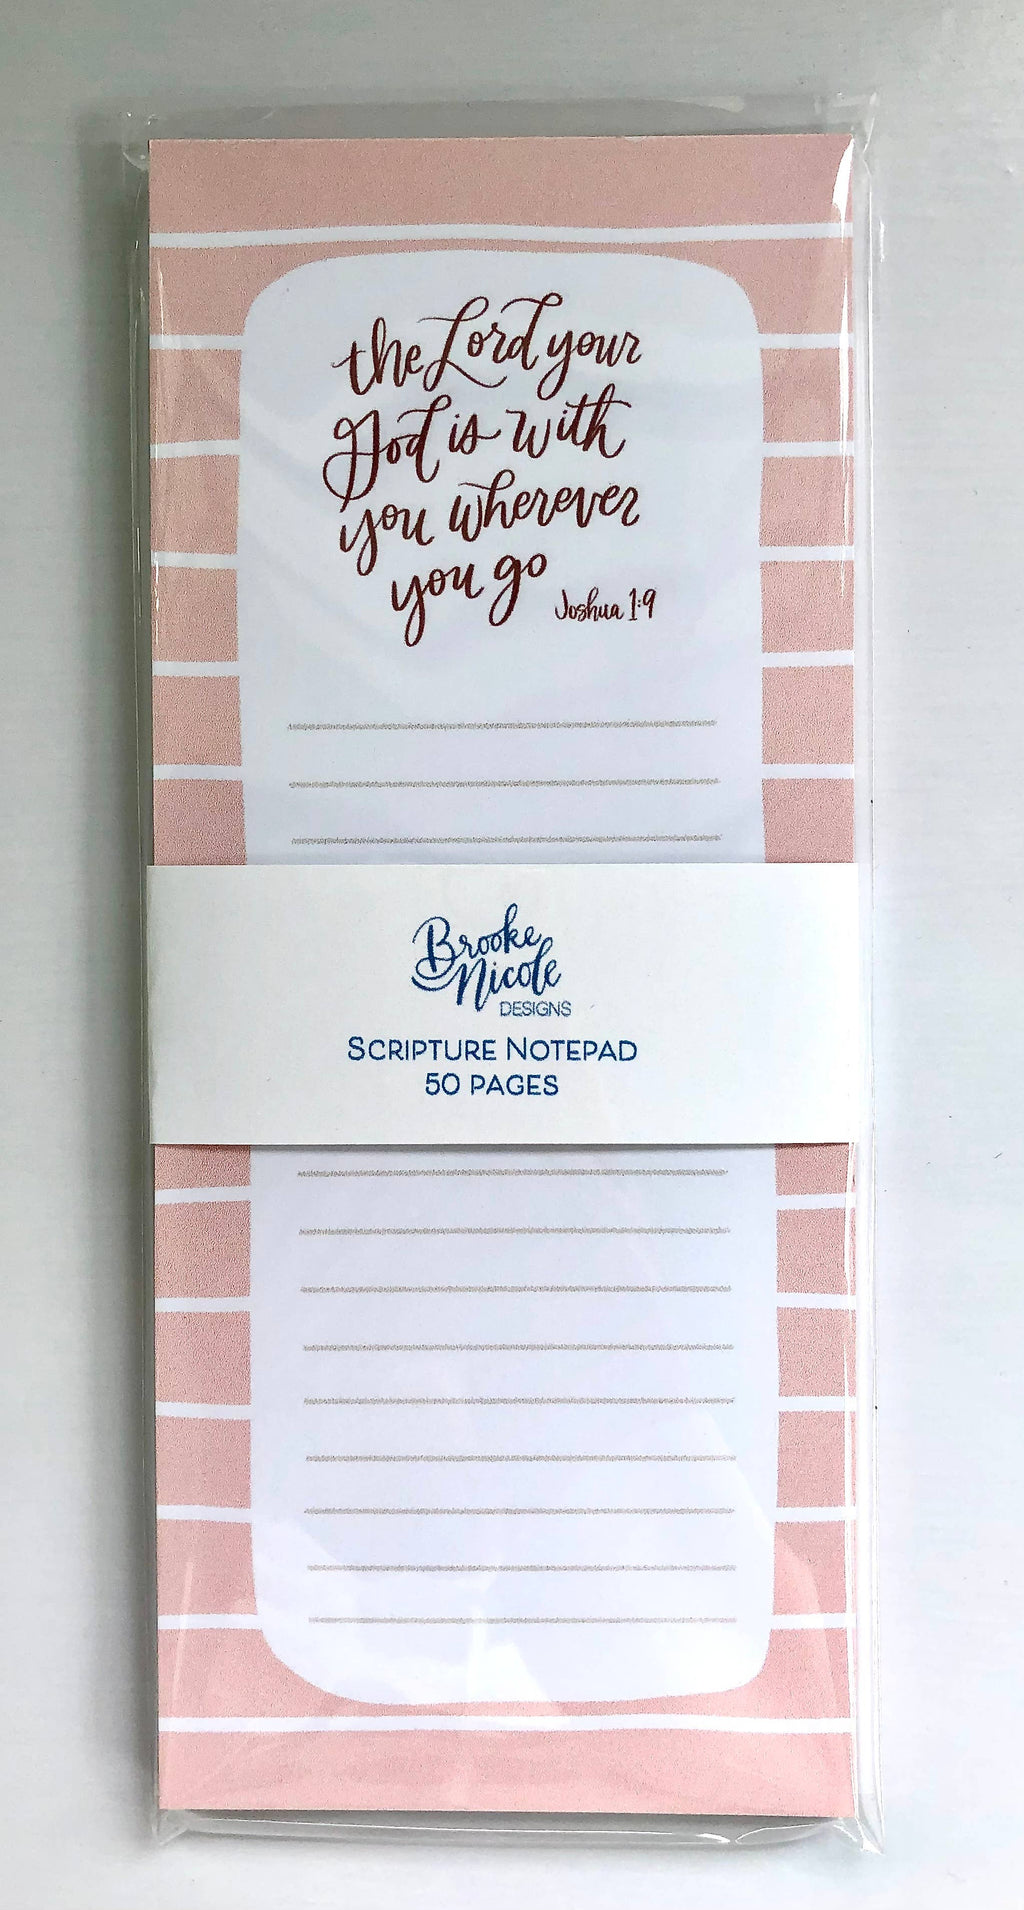 the Lord your
God is with
you wherever
you go
Joshua 1:9
Brooke
Nicole
DESIGNS
SCRIPTURE NOTEPAD
50 PAGES